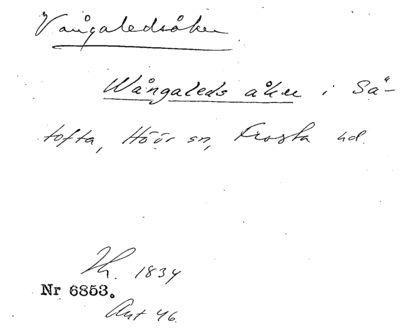 Vångaledsåker
Wångaleds åker i Sä-
tofta, Höör sn, Frosta hd.
Th. 1834
Nr 6853.
Ant 46.